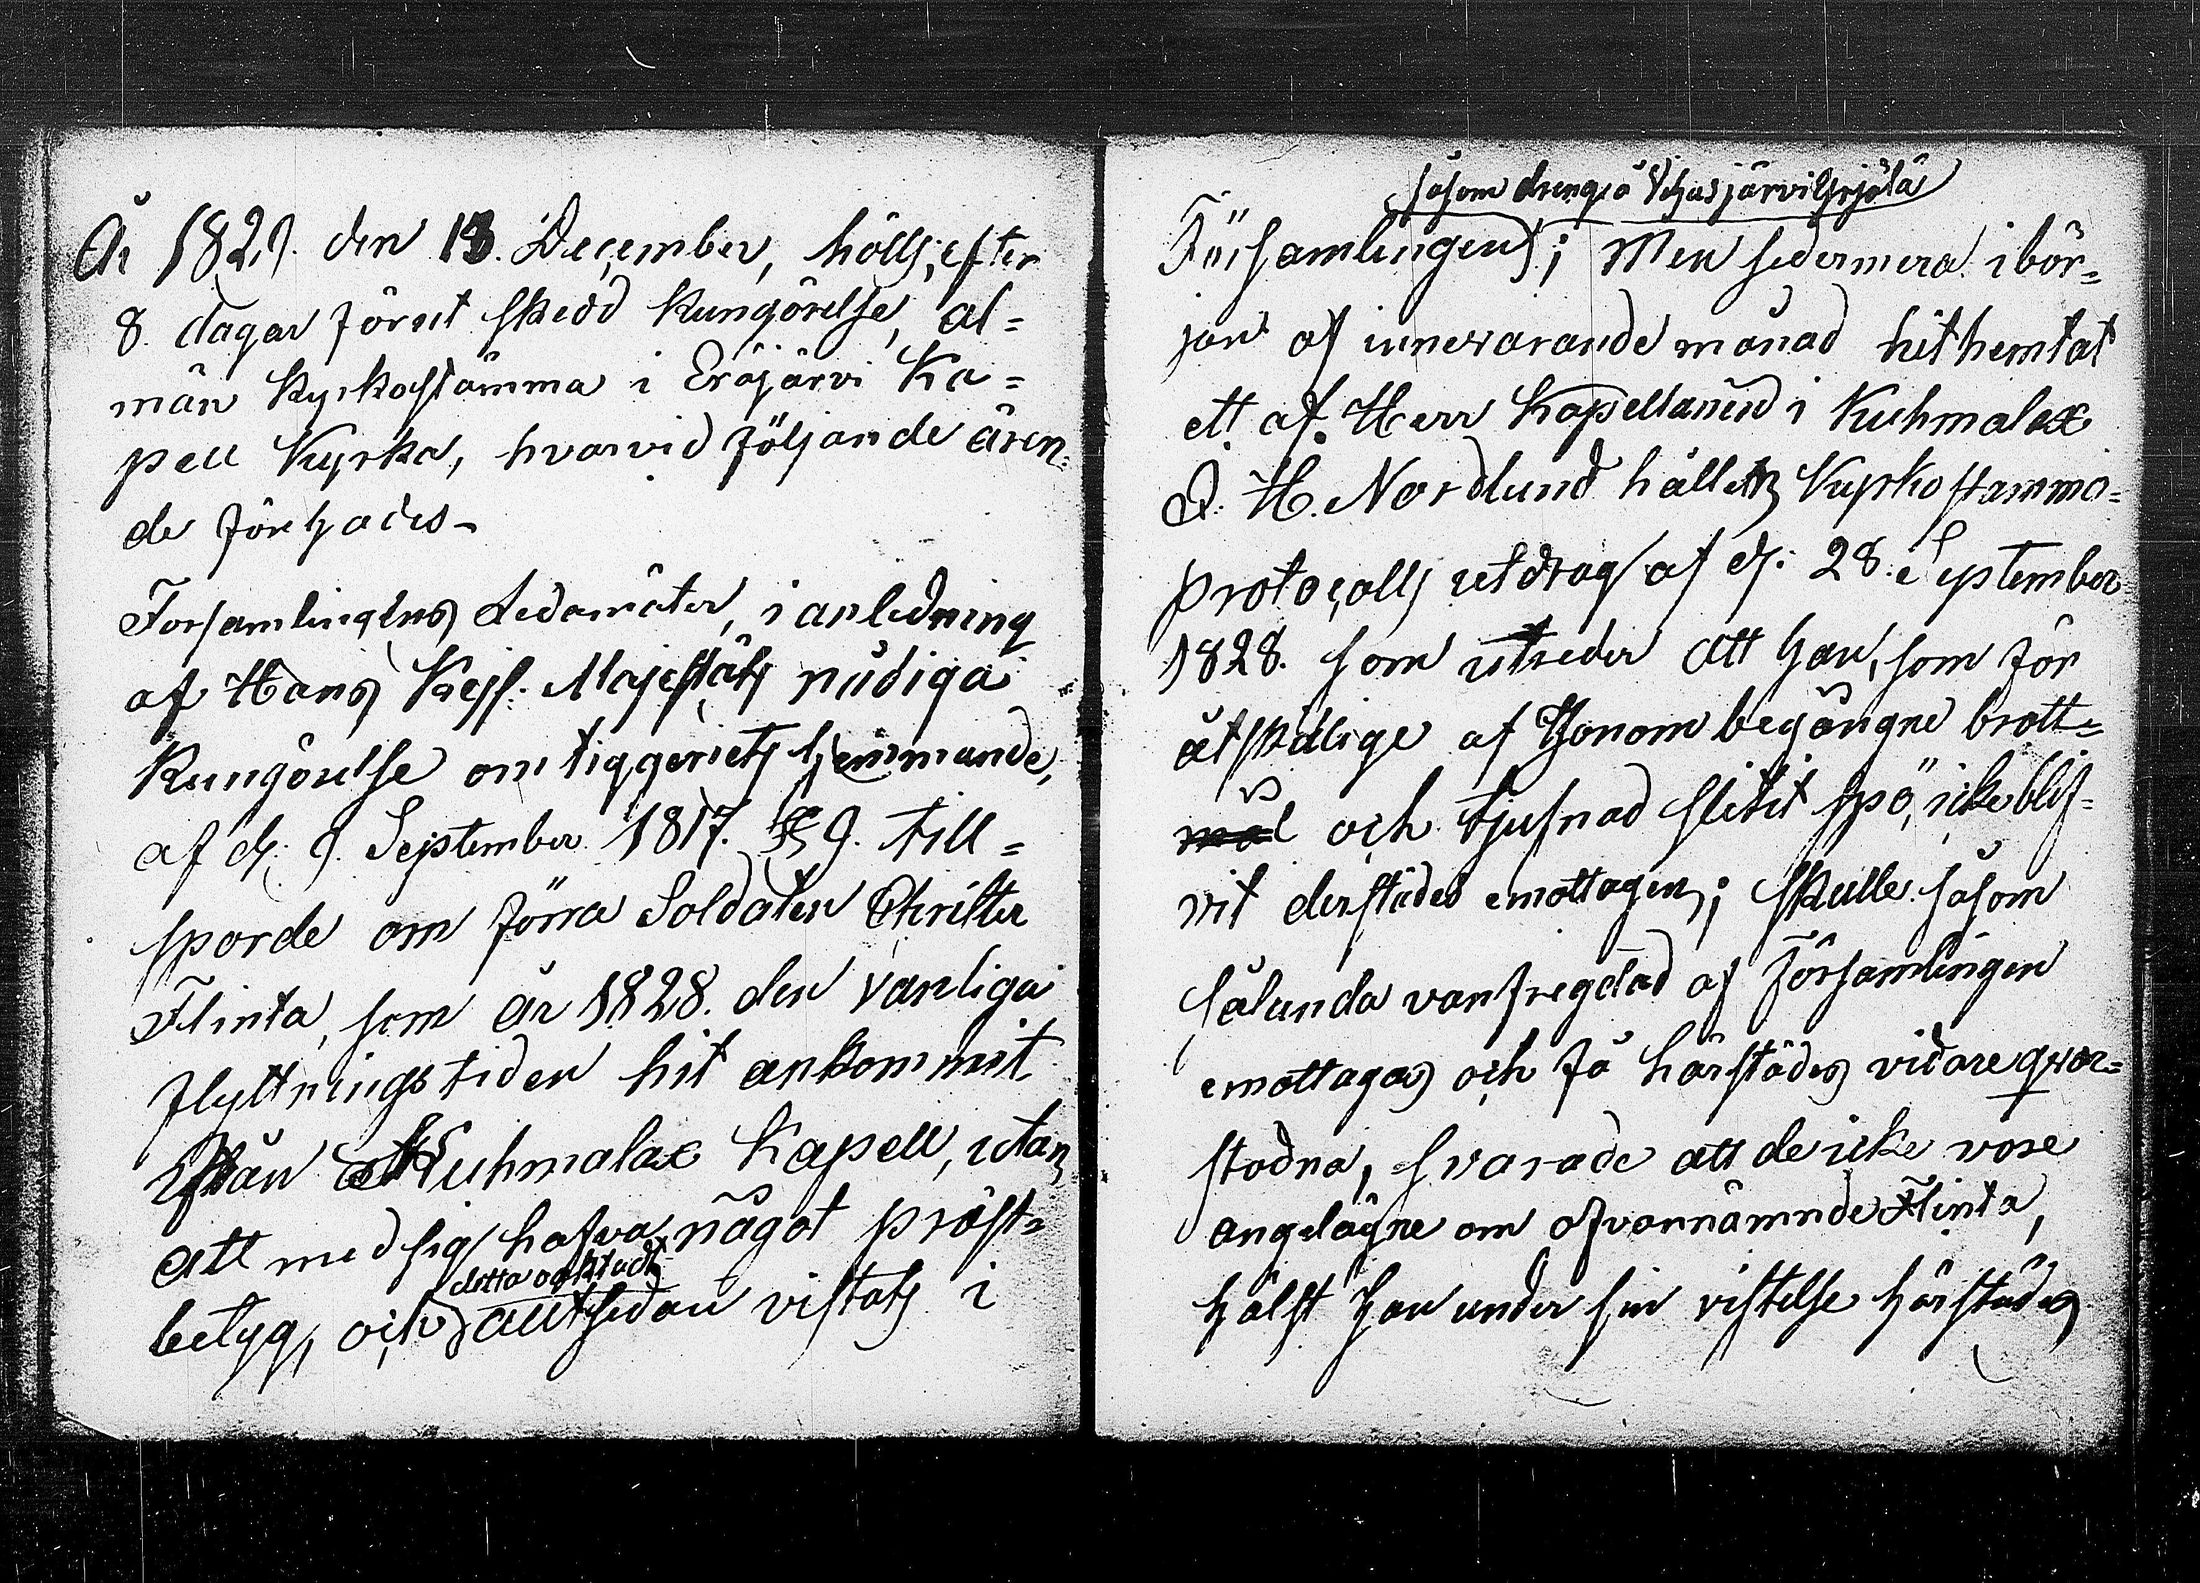 År 1829. den 13. December, hölls, efter
8. dagar förut skedd kungörelse, al=
män Kyrkostämma i Eräjärvi Ka=
pell Kyrka, hvarvid följande ären=
de förehades-
Forsamlingens Ledamöter, i anledning
af Hans Kejs. Majestäts nådiga
Kungörelse om tiggeriets hemmande,
af d. 9. September 1817. § 9. till=
sporde om förra Soldaten Christer
Flinta, som år 1828. den vanliga
flyttningstiden hit ankommit
från Kuhmalax Kapell, utan
att med sig hafva något präst=
detta oaktadt
betyg, och alltsedan vistats i
såsom dreng å Vihasjärvi
Församlingen; Men sedermera i bör=
jan af innevarande månad hithemtat
ett af Herr Kapellanen i Kuhmalax
H. Nordlund hållen Kyrkostämmo=
protocolls utdrag af d. 28. September
1828. som utreder att han, som för
åtskillige af Honom begångne brott=
mål och tjufnad slitit spö, icke blif=
vit derstädes emottagen; skulle såsom
sålunda vanfregdad af Församlingen
emottagas och få härstädes vidare qvar=
stadna, svarade att de icke vore
angelägne om ofvannämnde Flinta,
hälst han under sin vistelse härstädes